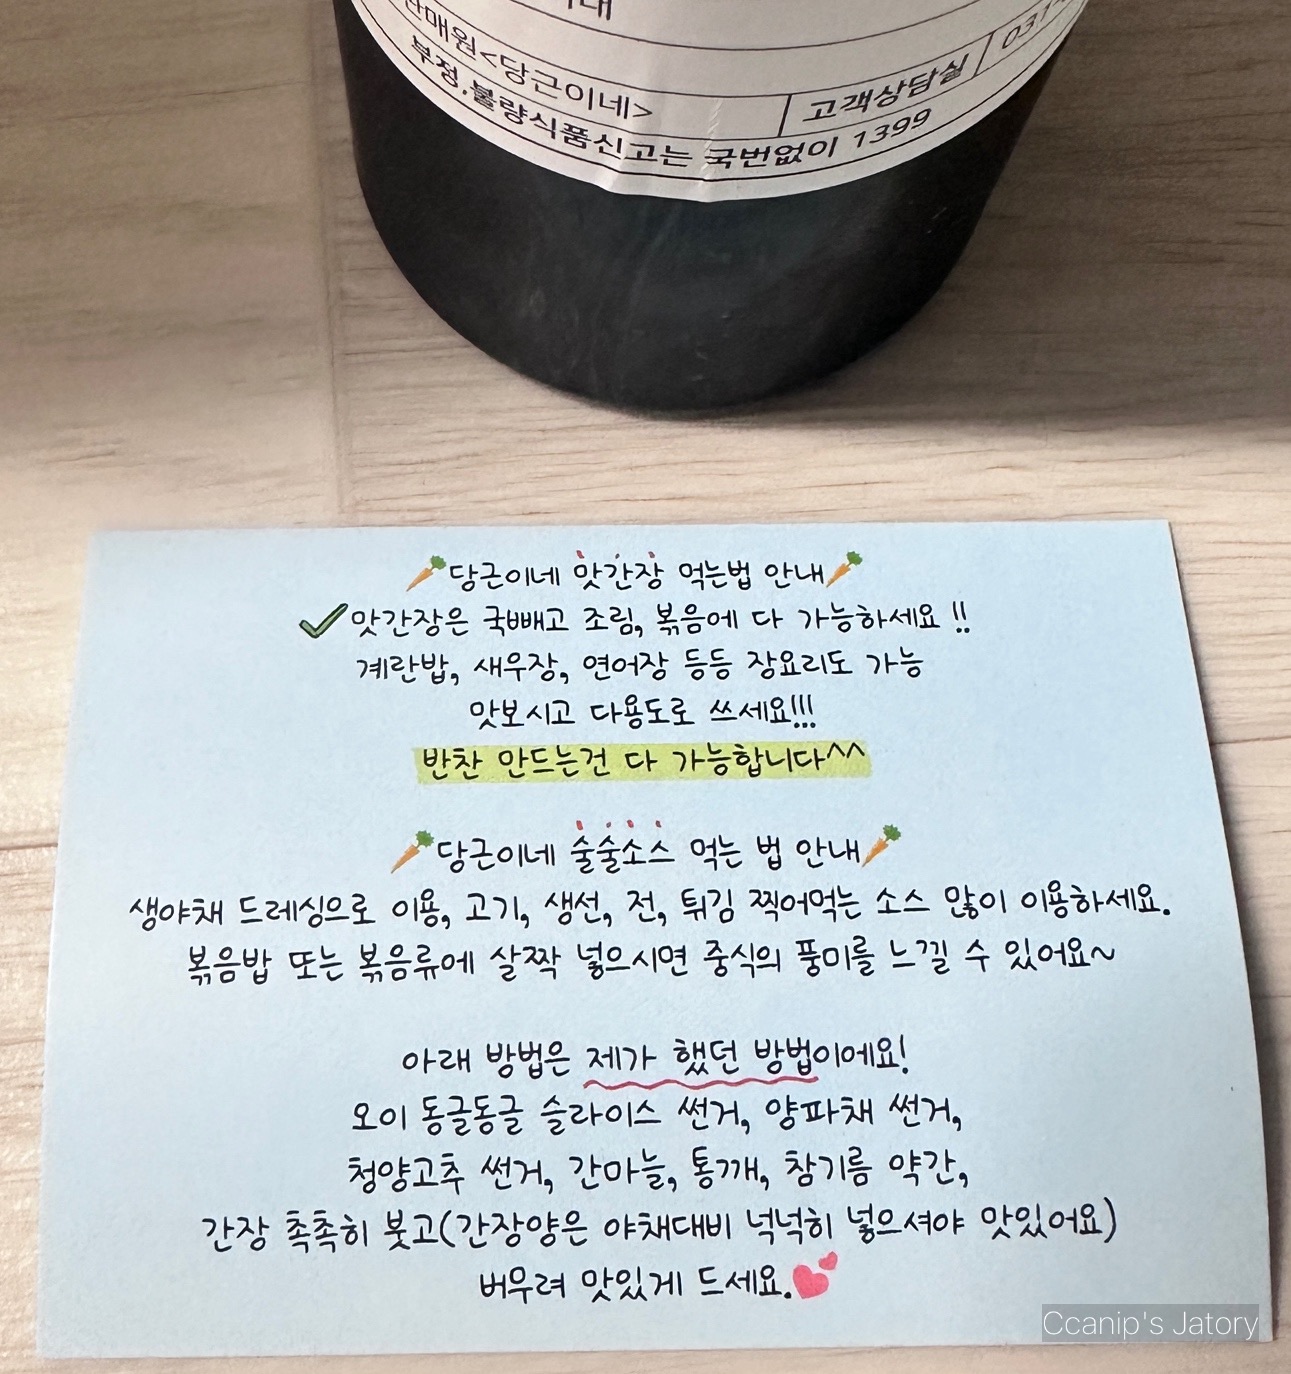 판매원<당근이네>
고객상담실
부정.불량식품신고는 국번없이 1399
당근이네 맛간장 먹는법 안내
맛간장은 국빼고 조림, 볶음에 다 가능하세요 !!
계란밥, 새우장, 연어장 등등 장요리도 가능
맛보시고 다용도로 쓰세요!!!
반찬 만드는건 다 가능합니다^^
당근이네 술술소스 먹는 법 안내
생야채 드레싱으로 이용, 고기, 생선, 전, 튀김 찍어먹는 소스 많이 이용하세요.
볶음밥 또는 볶음류에 살짝 넣으시면 중식의 풍미를 느낄 수 있어요~
아래 방법은 제가 했던 방법이에요!
오이 동글동글 슬라이스 썬거, 양파채 썬거,
청양고추 썬거, 간마늘, 통깨, 참기름 약간,
간장 촉촉히 붓고(간장양은 야채대비 넉넉히 넣으셔야 맛있어요)
버무려 맛있게 드세요.
Ccanip's Jatory